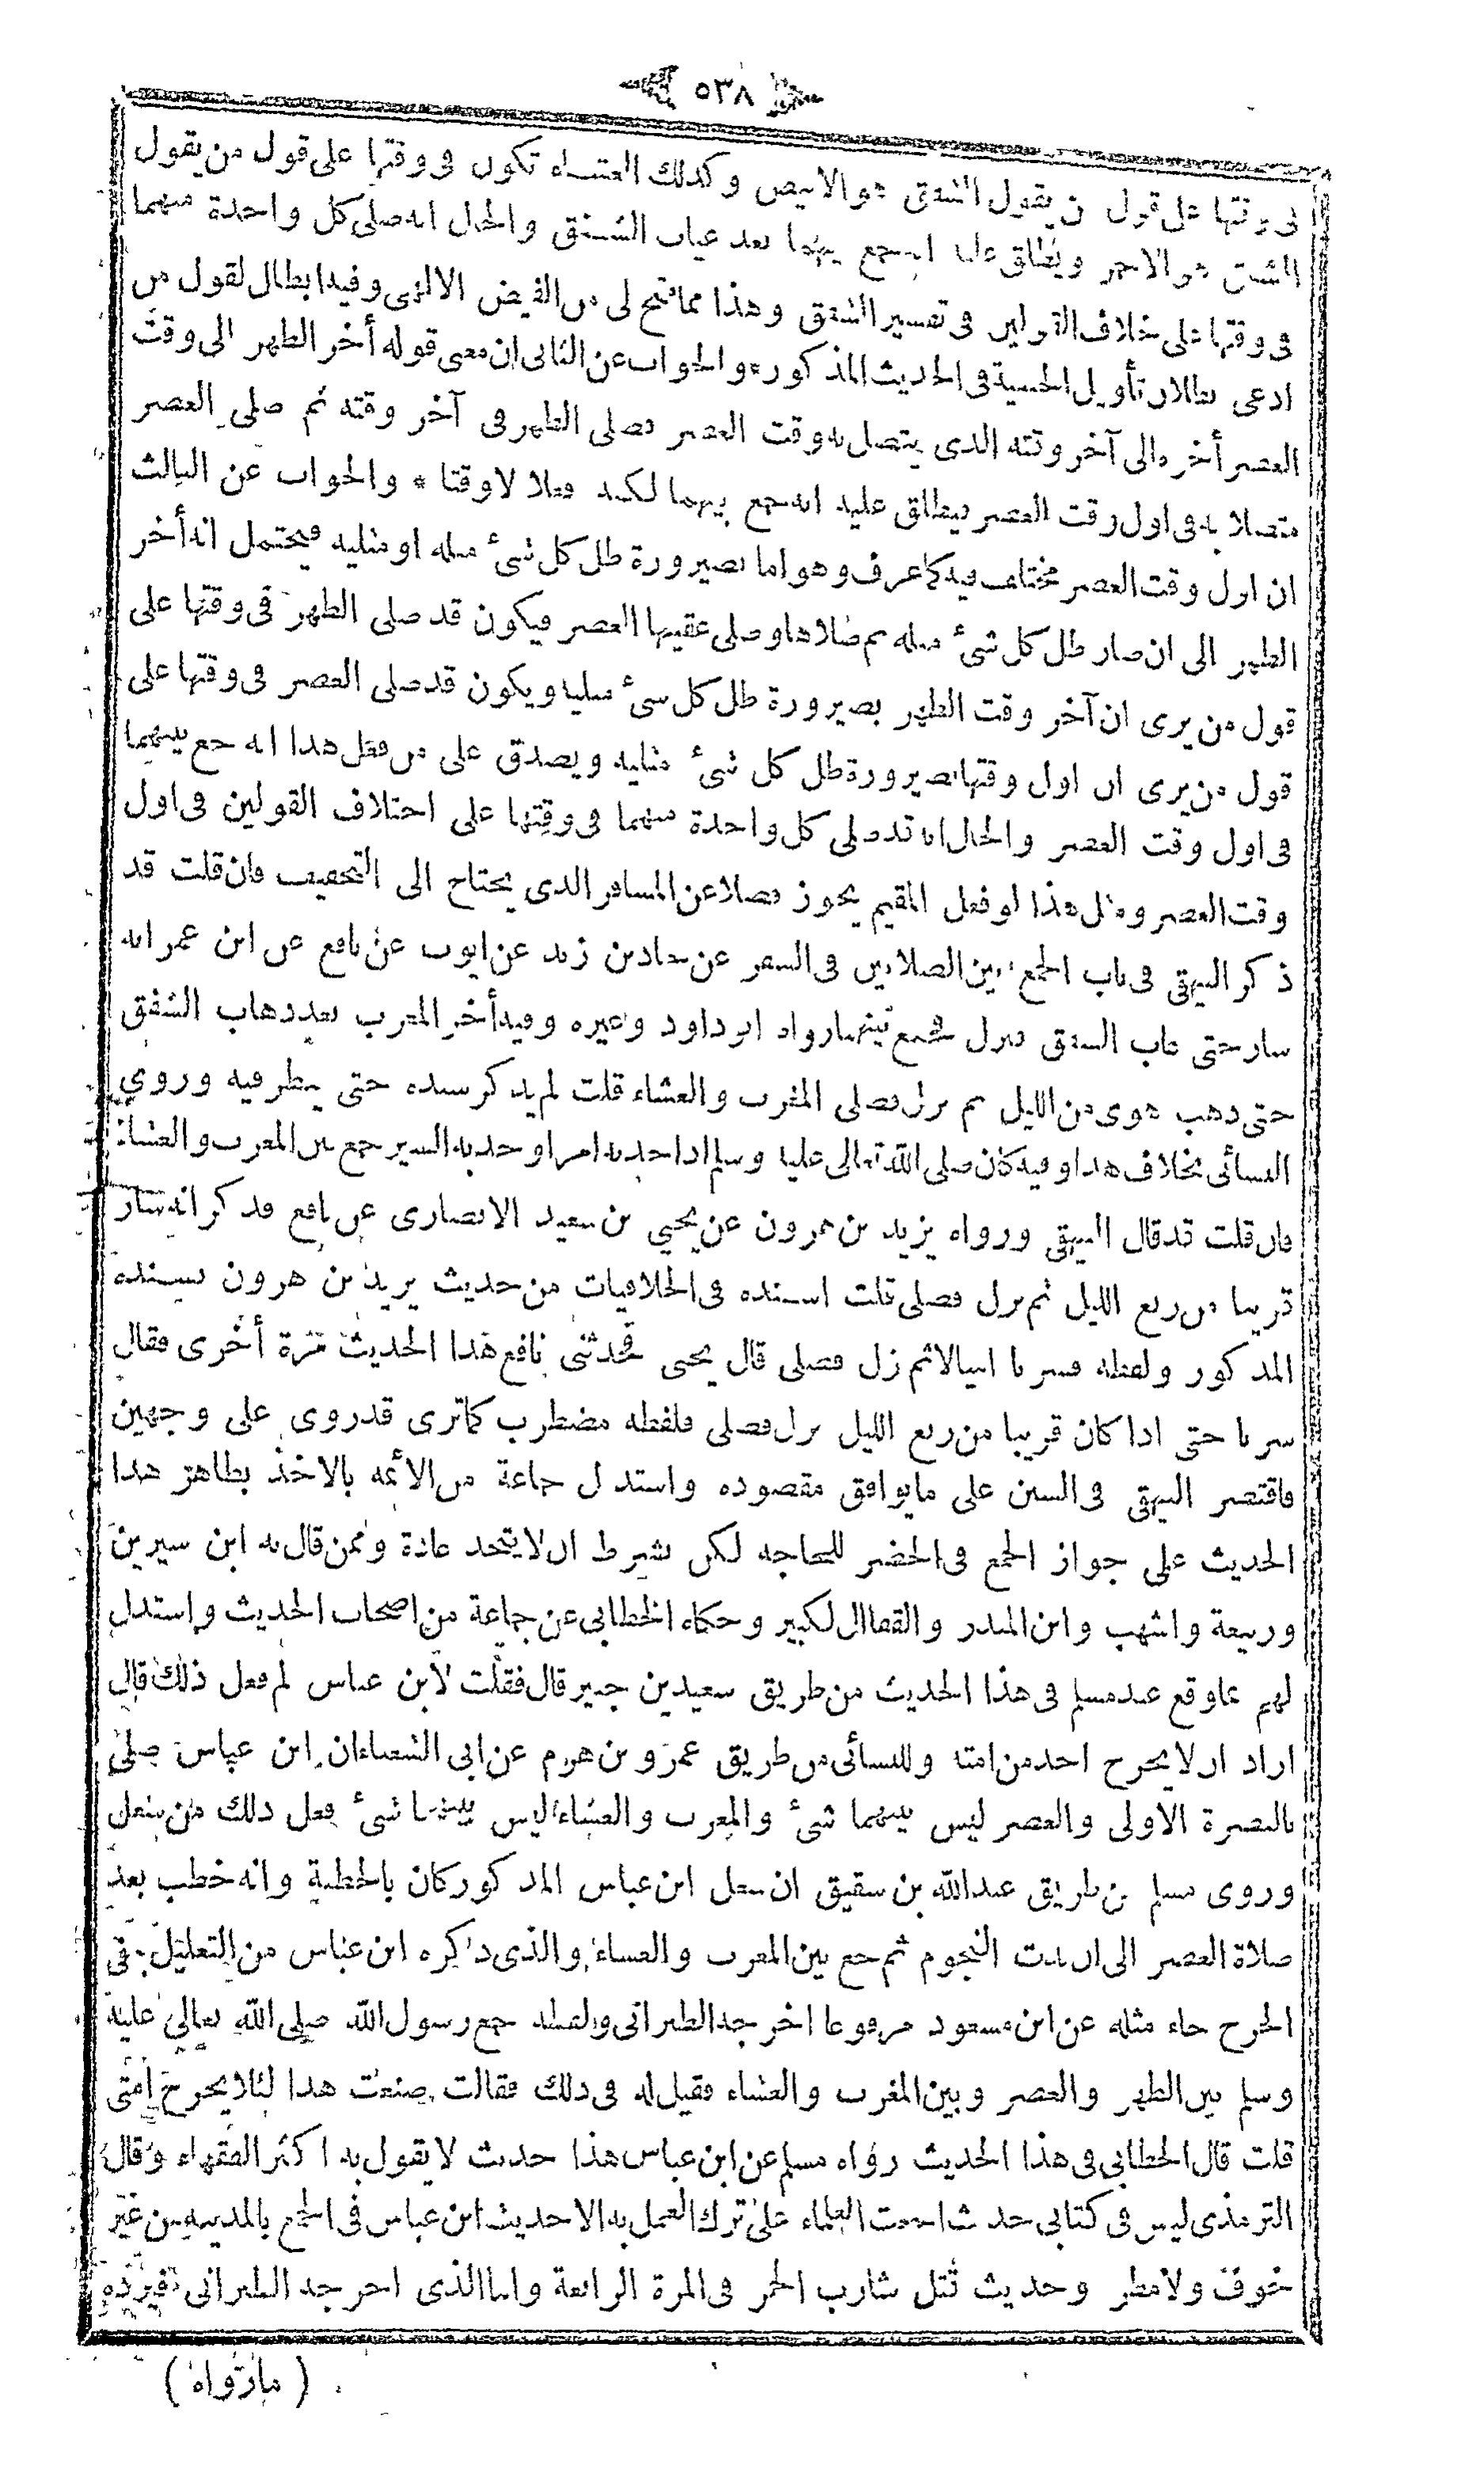 ٥٣٨
في وقتها على قول من يقول الشفق هو الابيض وكذلك العشاء تكون في وقتها على قول من يقول
الشفق هو الاحمر ويطلق عليه انه جمع بينهما بعد غياب الشفق والحال انه صلى كل واحدة منهما
في وقتها على خلاف القولين في تفسير الشفق وهذا مما فتح لي من الفيض الالهى وفيه ابطال لقول من
ادعى بطلان تأويل الحنفية في الحديث المذكور * والجواب عن الثانى ان معنى قوله أخر الظهر الى وقت
العصر أخره الى آخر وقته الذى يتصل به وقت العصر فصلى الظهر فى آخر وقته ثم صلى العصر
متصلا به فى اول وقت العصر فيطلق عليه انه جمع بينهما لكنه فعلا لا وقتا * والجواب عن الثالث
ان اول وقت العصر مختلف فيه كما عرف وهو اما بصيرورة ظل كل شئ مثله او مثليه فيحتمل انه أخر
الظهر الى ان صار ظل كل شئ مثله ثم صلاها وصلى عقيبها العصر فيكون قد صلى الظهر فى وقتها على
قول من يرى ان آخر وقت الظهر بصيرورة ظل كل شئ مثليه ويكون قد صلى العصر فى وقتها على
قول من يرى ان اول وقتها بصيرورة ظل كل شئ مثليه ويصدق على من فعل هذا انه جمع بينهما
فى اول وقت العصر والحال انه قد صلى كل واحدة منهما فى وقتها على اختلاف القولين فى اول
وقت العصر ومثل هذا لو فعل المقيم يجوز فضلا عن المسافر الذى يحتاج الى التخفيف فان قلت قد
ذكر البيهقى فى باب الجمع بين الصلاتين فى السفر عن حماد بن زيد عن ايوب عن نافع عن ابن عمر انه
سار حتى غاب الشفق فنزل فجمع بينهما رواه ابو داود وغيره وفيه أخر المغرب بعد ذهاب الشفق
حتى ذهب هوى من الليل ثم نزل فصلى المغرب والعشاء قلت لم يذكر سنده حتى ينظر فيه وروى
النسائى بخلاف هذا وفيه كان صلى الله تعالى عليه وسلم اذا جد به امر او جد به السير جمع بين المغرب والعشاء
فان قلت قد قال البيهقى ورواه يزيد بن هرون عن يحيى بن سعيد الانصارى عن نافع فذكر انه سار
قريبا من ربع الليل ثم نزل فصلى قلت اسنده فى الخلافيات من حديث يزيد بن هرون بسنده
المذكور ولفظه فسرنا اميالا ثم نزل فصلى قال يحيى فحدثنى نافع هذا الحديث مرة أخرى فقال
سرنا حتى اذا كان قريبا من ربع الليل نزل فصلى فلفظه مضطرب كما ترى قد روى على وجهين
فاقتصر البيهقى فى السنن على ما يوافق مقصوده واستدل جماعة من الأئمه بالاخذ بظاهر هذا
الحديث على جواز الجمع فى الحضر للحاجه لكن بشرط ان لا يتخذ عادة وممن قال به ابن سيرين
وربيعة واشهب وابن المنذر والقفال الكبير وحكاه الخطابى عن جماعة من اصحاب الحديث واستدل
لهم بما وقع عند مسلم فى هذا الحديث من طريق سعيد بن جبير قال فقلت لابن عباس لم فعل ذلك قال
اراد ان لا يحرج احد من امته وللنسائى من طريق عمرو بن هرم عن ابى الشعثاء ان ابن عباس صلى
بالبصرة الاولى والعصر ليس بينهما شئ والمغرب والعشاء ليس بينهما شئ فعل ذلك من شغل
وروى مسلم من طريق عبدالله بن شقيق ان شغل ابن عباس المذكور كان بالخطبة وانه خطب بعد
صلاة العصر الى ان بدت النجوم ثم جمع بين المغرب والعشاء والذى ذكره ابن عباس من التعليل فى
الحرج جاء مثله عن ابن مسعود مرفوعا اخرجه الطبرانى ولفظه جمع رسول الله صلى الله تعالى عليه
وسلم بين الظهر والعصر وبين المغرب والعشاء فقيل له فى ذلك فقالت صنعت هذا لئلا يحرج امتى
قلت قال الخطابى فى هذا الحديث رواه مسلم عن ابن عباس هذا حديث لا يقول به اكثر الفقهاء وقال
الترمذى ليس فى كتابى حديث اجمعت العلماء على ترك العمل به الا حديث ابن عباس فى الجمع بالمدينه من غير
خوف ولا مطر وحديث قتل شارب الخمر فى المرة الرابعة واما الذى اخرجه الطبرانى فيرده
( مارواه )